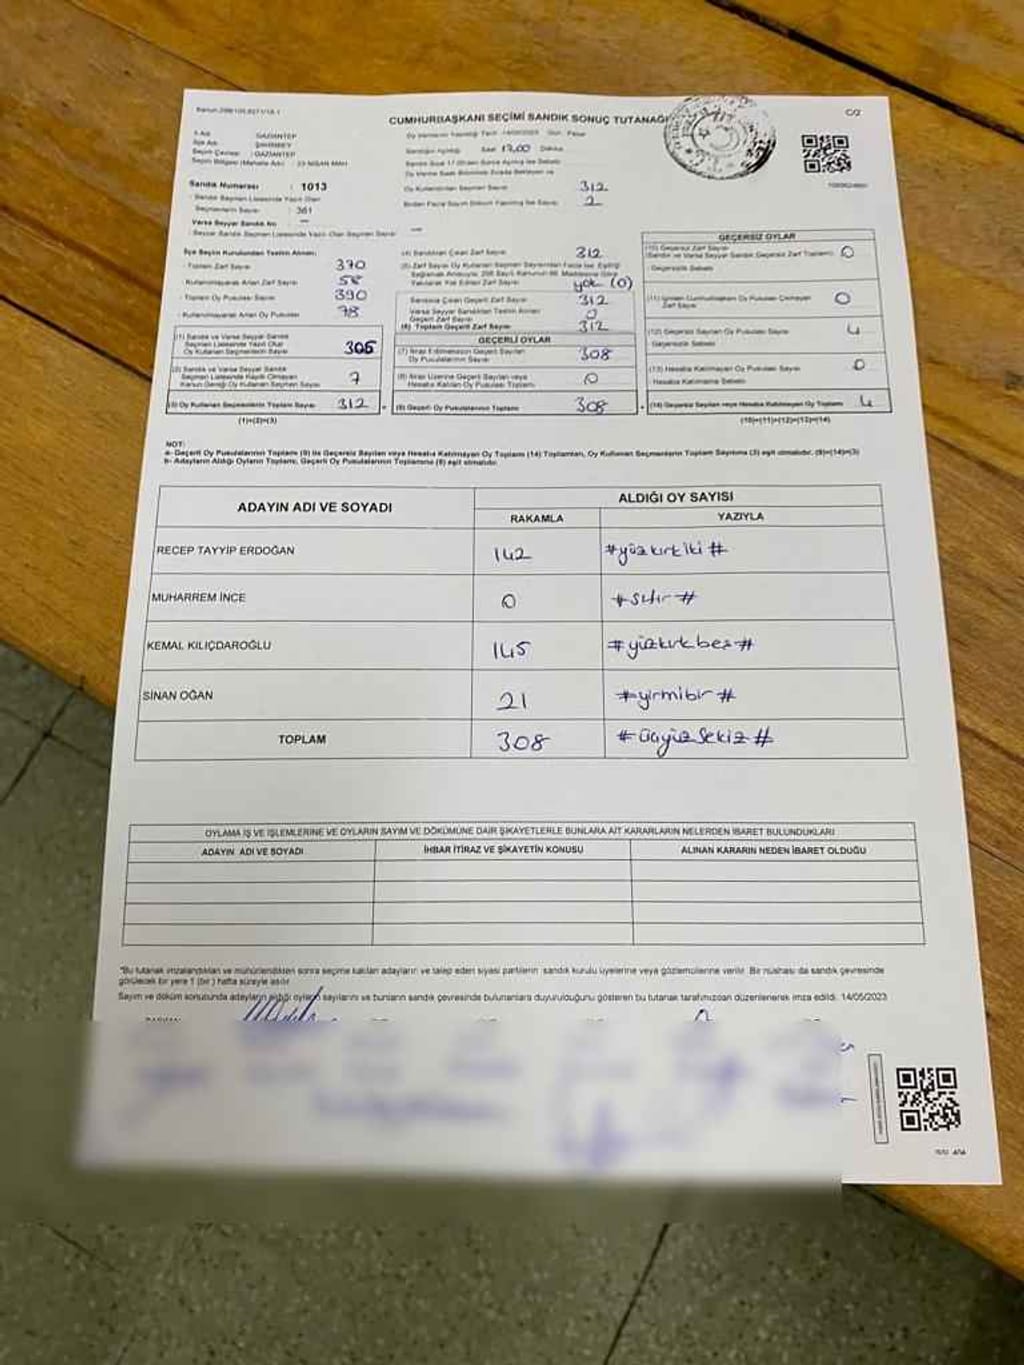 CUMHURBAŞKANI SEÇİMİ SANDIK SONUÇ TUTANAĞI
İl Adı : GAZİANTEP
İlçe Adı : ŞAHİNBEY
Seçim Çevresi : GAZİANTEP
Seçim Bölgesi (Mahalle Adı) : 23 NİSAN MAH
Sandık Numarası : 1013
Sandık Seçmen Listesinde Yazılı Olan
Seçmenlerin Sayısı : 361
Varsa Seyyar Sandık No —
Seyyar Sandık Seçmen Listesinde Yazılı Olan Seçmen Sayısı —
Oy Verme Saati Bitiminde Sırada Bekleyen ve
Oy Kullandırılan Seçmen Sayısı 312
Birden Fazla Sayım Döküm Yapılmış İse Sayısı 2
İlçe Seçim Kurulundan Teslim Alınan:
Toplam Zarf Sayısı 370
Kullanılmayarak Artan Zarf Sayısı 58
Toplam Oy Pusulası Sayısı 390
Kullanılmayarak Artan Oy Pusulası 78
(1) Sandık ve Varsa Seyyar Sandık
Seçmen Listesinde Yazılı Olup
Oy Kullanan Seçmenlerin Sayısı 305
(2) Sandık ve Varsa Seyyar Sandık
Seçmen Listesinde Kayıtlı Olmayan
Kanun Gereği Oy Kullanan Seçmen Sayısı 7
(3) Oy Kullanan Seçmenlerin Toplam Sayısı 312
(1)+(2)=(3)
(4) Sandıktan Çıkan Zarf Sayısı 312
Yakılarak Yok Edilen Zarf Sayısı yok (0)
Sandıkta Çıkan Geçerli Zarf Sayısı 312
Varsa Seyyar Sandıktan Teslim Alınan
Geçerli Zarf Sayısı 0
(6) Toplam Geçerli Zarf Sayısı 312
GEÇERLİ OYLAR
(7) İtiraz Edilmeksizin Geçerli Sayılan
Oy Pusulalarının Sayısı 308
(8) İtiraz Üzerine Geçerli Sayılan veya
Hesaba Katılan Oy Pusulası Toplamı 0
(9) Geçerli Oy Pusulalarının Toplamı 308
GEÇERSİZ OYLAR
(10) Geçersiz Zarf Sayısı
(Sandık ve Varsa Seyyar Sandık Geçersiz Zarf Toplamı) 0
Geçersizlik Sebebi
(11) İçinden Cumhurbaşkanı Oy Pusulası Çıkmayan
Zarf Sayısı 0
(12) Geçersiz Sayılan Oy Pusulası Sayısı 4
Geçersizlik Sebebi
(13) Hesaba Katılmayan Oy Pusulası Sayısı 0
Hesaba Katılmama Sebebi
(14) Geçersiz Sayılan veya Hesaba Katılmayan Oy Toplamı 4
(10)+(11)+(12)+(13)=(14)
NOT:
a- Geçerli Oy Pusulalarının Toplamı (9) ile Geçersiz Sayılan veya Hesaba Katılmayan Oy Toplamı (14) Toplamları, Oy Kullanan Seçmenlerin Toplam Sayısına (3) eşit olmalıdır. (9)+(14)=(3)
b- Adayların Aldığı Oyların Toplamı, Geçerli Oy Pusulalarının Toplamına (9) eşit olmalıdır.
ADAYIN ADI VE SOYADI
ALDIĞI OY SAYISI
RAKAMLA YAZIYLA
RECEP TAYYİP ERDOĞAN 142 #yüzkırkiki#
MUHARREM İNCE 0 #sıfır#
KEMAL KILIÇDAROĞLU 145 #yüzkırkbeş#
SİNAN OĞAN 21 #yirmibir#
TOPLAM 308 #üçyüzsekiz#
OYLAMA İŞ VE İŞLEMLERİNE VE OYLARIN SAYIM VE DÖKÜMÜNE DAİR ŞİKAYETLERLE BUNLARA AİT KARARLARIN NELERDEN İBARET BULUNDUKLARI
ADAYIN ADI VE SOYADI İHBAR İTİRAZ VE ŞİKAYETİN KONUSU ALINAN KARARIN NEDEN İBARET OLDUĞU
"Bu tutanak imzalandıktan ve mühürlendikten sonra seçime katılan adayların ve talep eden siyasi partilerin sandık kurulu üyelerine veya gözlemcilerine verilir. Bir nüshası da sandık çevresinde
görülecek bir yere 1 (bir) hafta süreyle asılır.
Sayım ve döküm sonucunda adayların aldığı oyların sayılarını ve bunların sandık çevresinde bulunanlara duyurulduğunu gösteren bu tutanak tarafımızdan düzenlenerek imza edildi. 14/05/2023